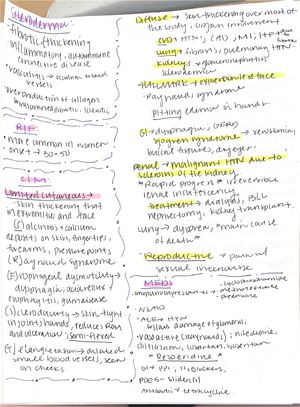 Scleroderma:
• fibrotic thickening
inflammatory, autoimmune
connective disease
• vasculitis → occulsion of blood
vessels
• over production of collagen
inflamed, fibrotic, sclerotic
R/F
• more common in women
• onset → 30-50
C/M
Limited cutaneous →
• skin thickening that
in extremities and face
(C)alcinosis → calcium
deposits on skin, fingertips,
forearms, pressure points
(R)aynaud syndrome
(E)sophageal dysmotility →
dysphagia, acid reflux,
esophagitis, gum disease
(S)clerodactyly → skin tight
in joints/hands, reduces ROM
and ulceration; semi-flexed
(T)elangiectasia → dilated
small blood vessels, seen
on cheeks.
Diffuse → skin thickening over most of
the body, organ involvement
CVD → HTN, CAD, MI, HF due to fibrotic
Lung → fibrosis, pulmonary HTN.
kidneys → glomerulonephritis
scleroderma
HALLMARK →
• Raynauds syndrome
• pitting edema in hands
GI → dysphagia, GERD
sjogren syndrome → xerostomia,
buccal tissues, dry eyes.
renal → malignant HTN due to
sclerosis of the kidney.
*Rapid progress * irreversible
renal insufficiency
treatment → dialysis, BLL
nephrectomy, kidney transplant.
lung → dyspnea, *main cause
of death*
• Reproductive → painful
sexual intercourse
MEDS
• immunosuppressants → cyclophosphamide
→ methotrexate
→ prednisone
• NSAID
• ACE → HTN
kidney damage & glomeruli
• vasoactive (raynauds): nifedipine,
diltiazem, losartan, bosentan
* Reserpidine *
GI → PPI, H₂ blockers
PDE5 →
Antibiotic → tetracycline.